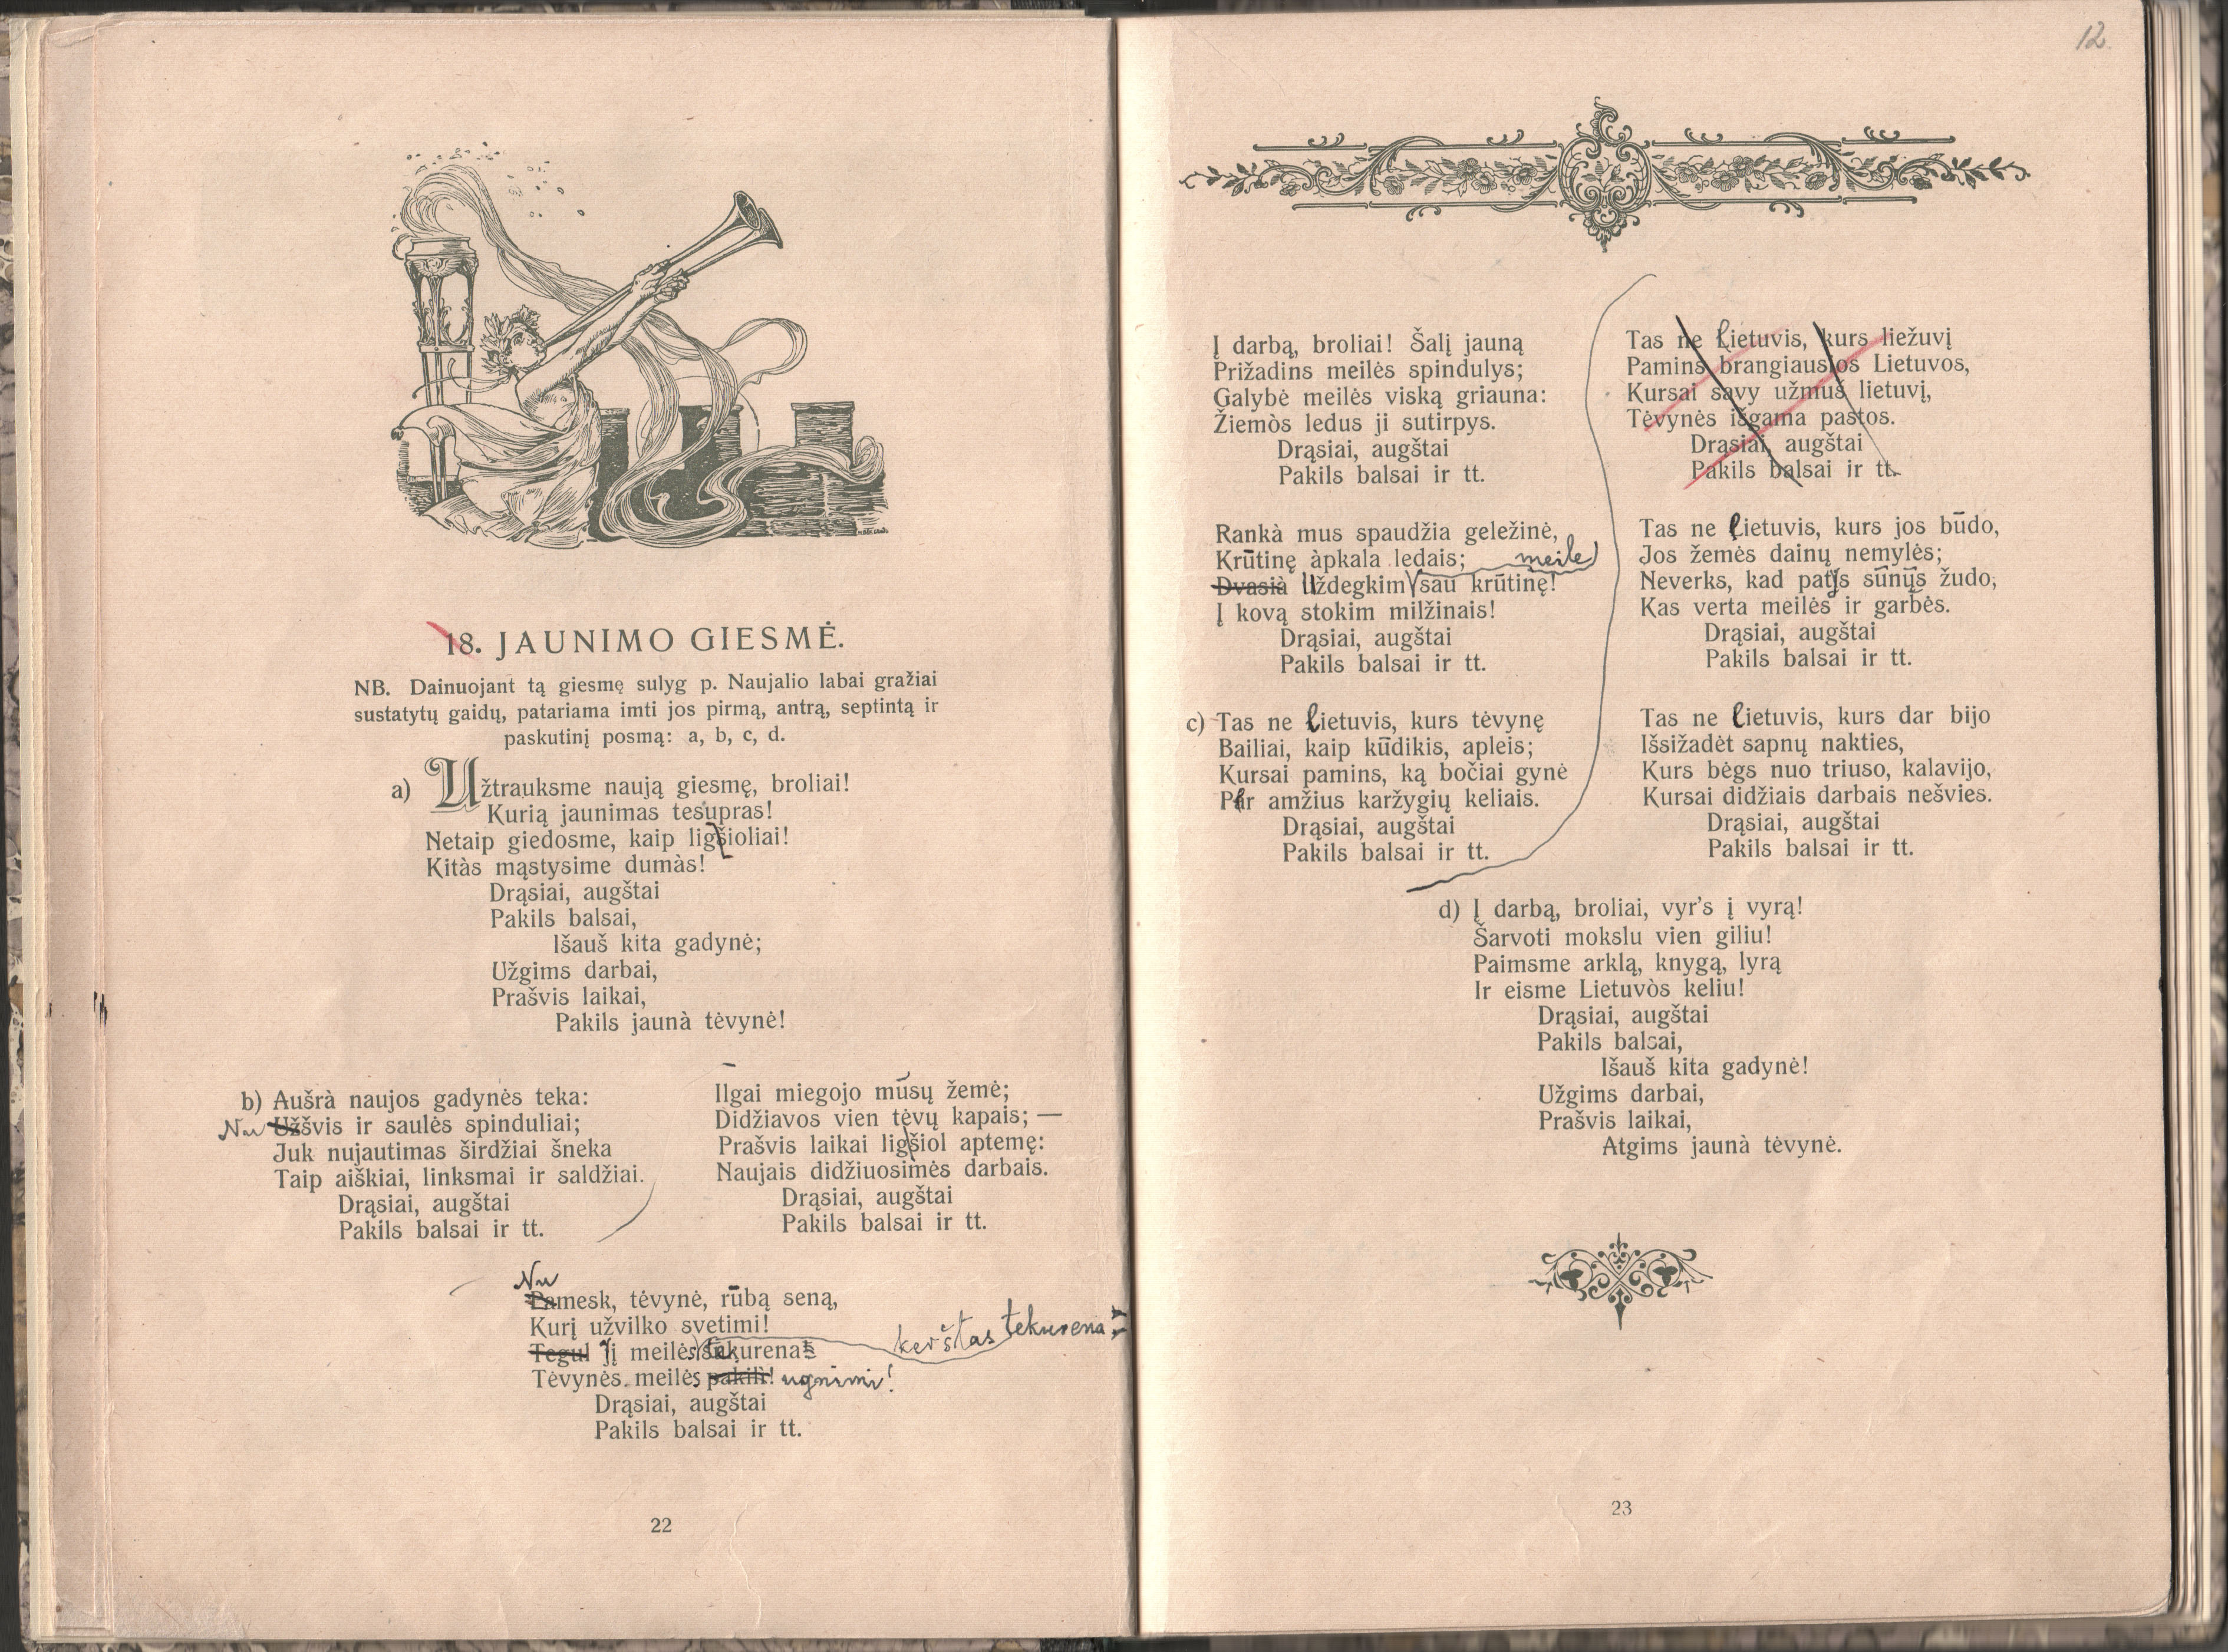 18. JAUNIMO GIESMĖ.
NB. Dainuojant tą giesmę sulyg p. Naujalio labai gražiai
sustatytų gaidų, patariama imti jos pirmą, antrą, septintą ir
paskutinį posmą: a, b, c, d.
a) Užtrauksme naują giesmę, broliai!
Kurią jaunimas tesupras!
Netaip giedosme, kaip ligšioliai!
Kitàs mąstysime dumàs!
Drąsiai, augštai
Pakils balsai,
Išauš kita gadynė;
Užgims darbai,
Prašvis laikai,
Pakils jaunà tėvynė!
b) Aušrà naujos gadynės teka:
Nu Užšvis ir saulės spinduliai;
Juk nujautimas širdžiai šneka
Taip aiškiai, linksmai ir saldžiai.
Drąsiai, augštai
Pakils balsai ir tt.
Ilgai miegojo mūsų žemė;
Didžiavos vien tėvų kapais; —
Prašvis laikai ligšiol aptemę:
Naujais didžiuosimės darbais.
Drąsiai, augštai
Pakils balsai ir tt.
Nu
Pamesk, tėvynė, rūbą seną,
Kurį užvilko svetimi!
Tegul jį meilės kurena kerštas tekurena
Tėvynės meilės pakilì! ugnimi!
Drąsiai, augštai
Pakils balsai ir tt.
22
12
Į darbą, broliai! Šalį jauną
Prižadins meilės spindulys;
Galybė meilės viską griauna:
Žiemòs ledus ji sutirpys.
Drąsiai, augštai
Pakils balsai ir tt.
Rankà mus spaudžia geležinė,
Krūtinę àpkala ledais;
meile
Dvasià Uždegkim sau krūtinę!
Į kovą stokim milžinais!
Drąsiai, augštai
Pakils balsai ir tt.
c) Tas ne lietuvis, kurs tėvynę
Bailiai, kaip kūdikis, apleis;
Kursai pamins, ką bočiai gynė
Per amžius karžygių keliais.
Drąsiai, augštai
Pakils balsai ir tt.
Tas ne lietuvis, kurs liežuvį
Pamins brangiausios Lietuvos,
Kursai savy užmuš lietuvį,
Tėvynės išgama pastos.
Drąsiai, augštai
Pakils balsai ir tt.
Tas ne lietuvis, kurs jos būdo,
Jos žemės dainų nemylės;
Neverks, kad patįs sūnųs žudo,
Kas verta meilės ir garbės.
Drąsiai, augštai
Pakils balsai ir tt.
Tas ne lietuvis, kurs dar bijo
Išsižadėt sapnų nakties,
Kurs bėgs nuo triuso, kalavijo,
Kursai didžiais darbais nešvies.
Drąsiai, augštai
Pakils balsai ir tt.
d) Į darbą, broliai, vyr's į vyrą!
Šarvoti mokslu vien giliu!
Paimsme arklą, knygą, lyrą
Ir eisme Lietuvòs keliu!
Drąsiai, augštai
Pakils balsai,
Išauš kita gadynė!
Užgims darbai,
Prašvis laikai,
Atgims jaunà tėvynė.
23